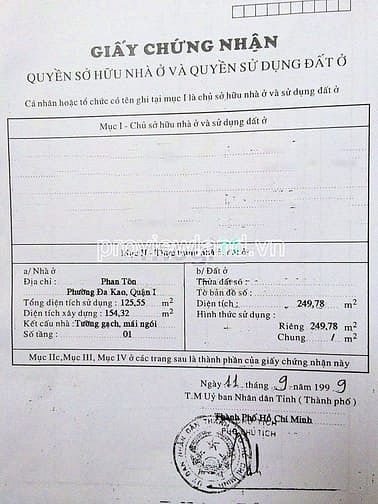 GIẤY CHỨNG NHẬN
QUYỀN SỞ HỮU NHÀ Ở VÀ QUYỀN SỬ DỤNG ĐẤT Ở
Cá nhân hoặc tổ chức có tên ghi tại mục I là chủ sở hữu nhà ở và sử dụng đất ở
Mục I - Chủ sở hữu nhà ở và sử dụng đất ở
proviewland.vn
a/ Nhà ở Phan Tôn
Phường Đa Kao, Quận I
Tổng diện tích sử dụng: 125,55 m2
Diện tích xây dựng: 154,32 m2
Kết cấu nhà: Tường gạch, mái ngói
Số tầng: 01
b/ Đất ở
Thửa đất số:
Tờ bản đồ số:
Diện tích: 249,78 m2
Hình thức sử dụng:
Riêng 249,78 m2
Chung / m2
Mục IIc, Mục III, Mục IV ở các trang sau là thành phần của giấy chứng nhận này
Ngày 11 tháng 9 năm 1999
T.M Uỷ ban Nhân dân Tỉnh (Thành phố)
Thành Phố Hồ Chí Minh